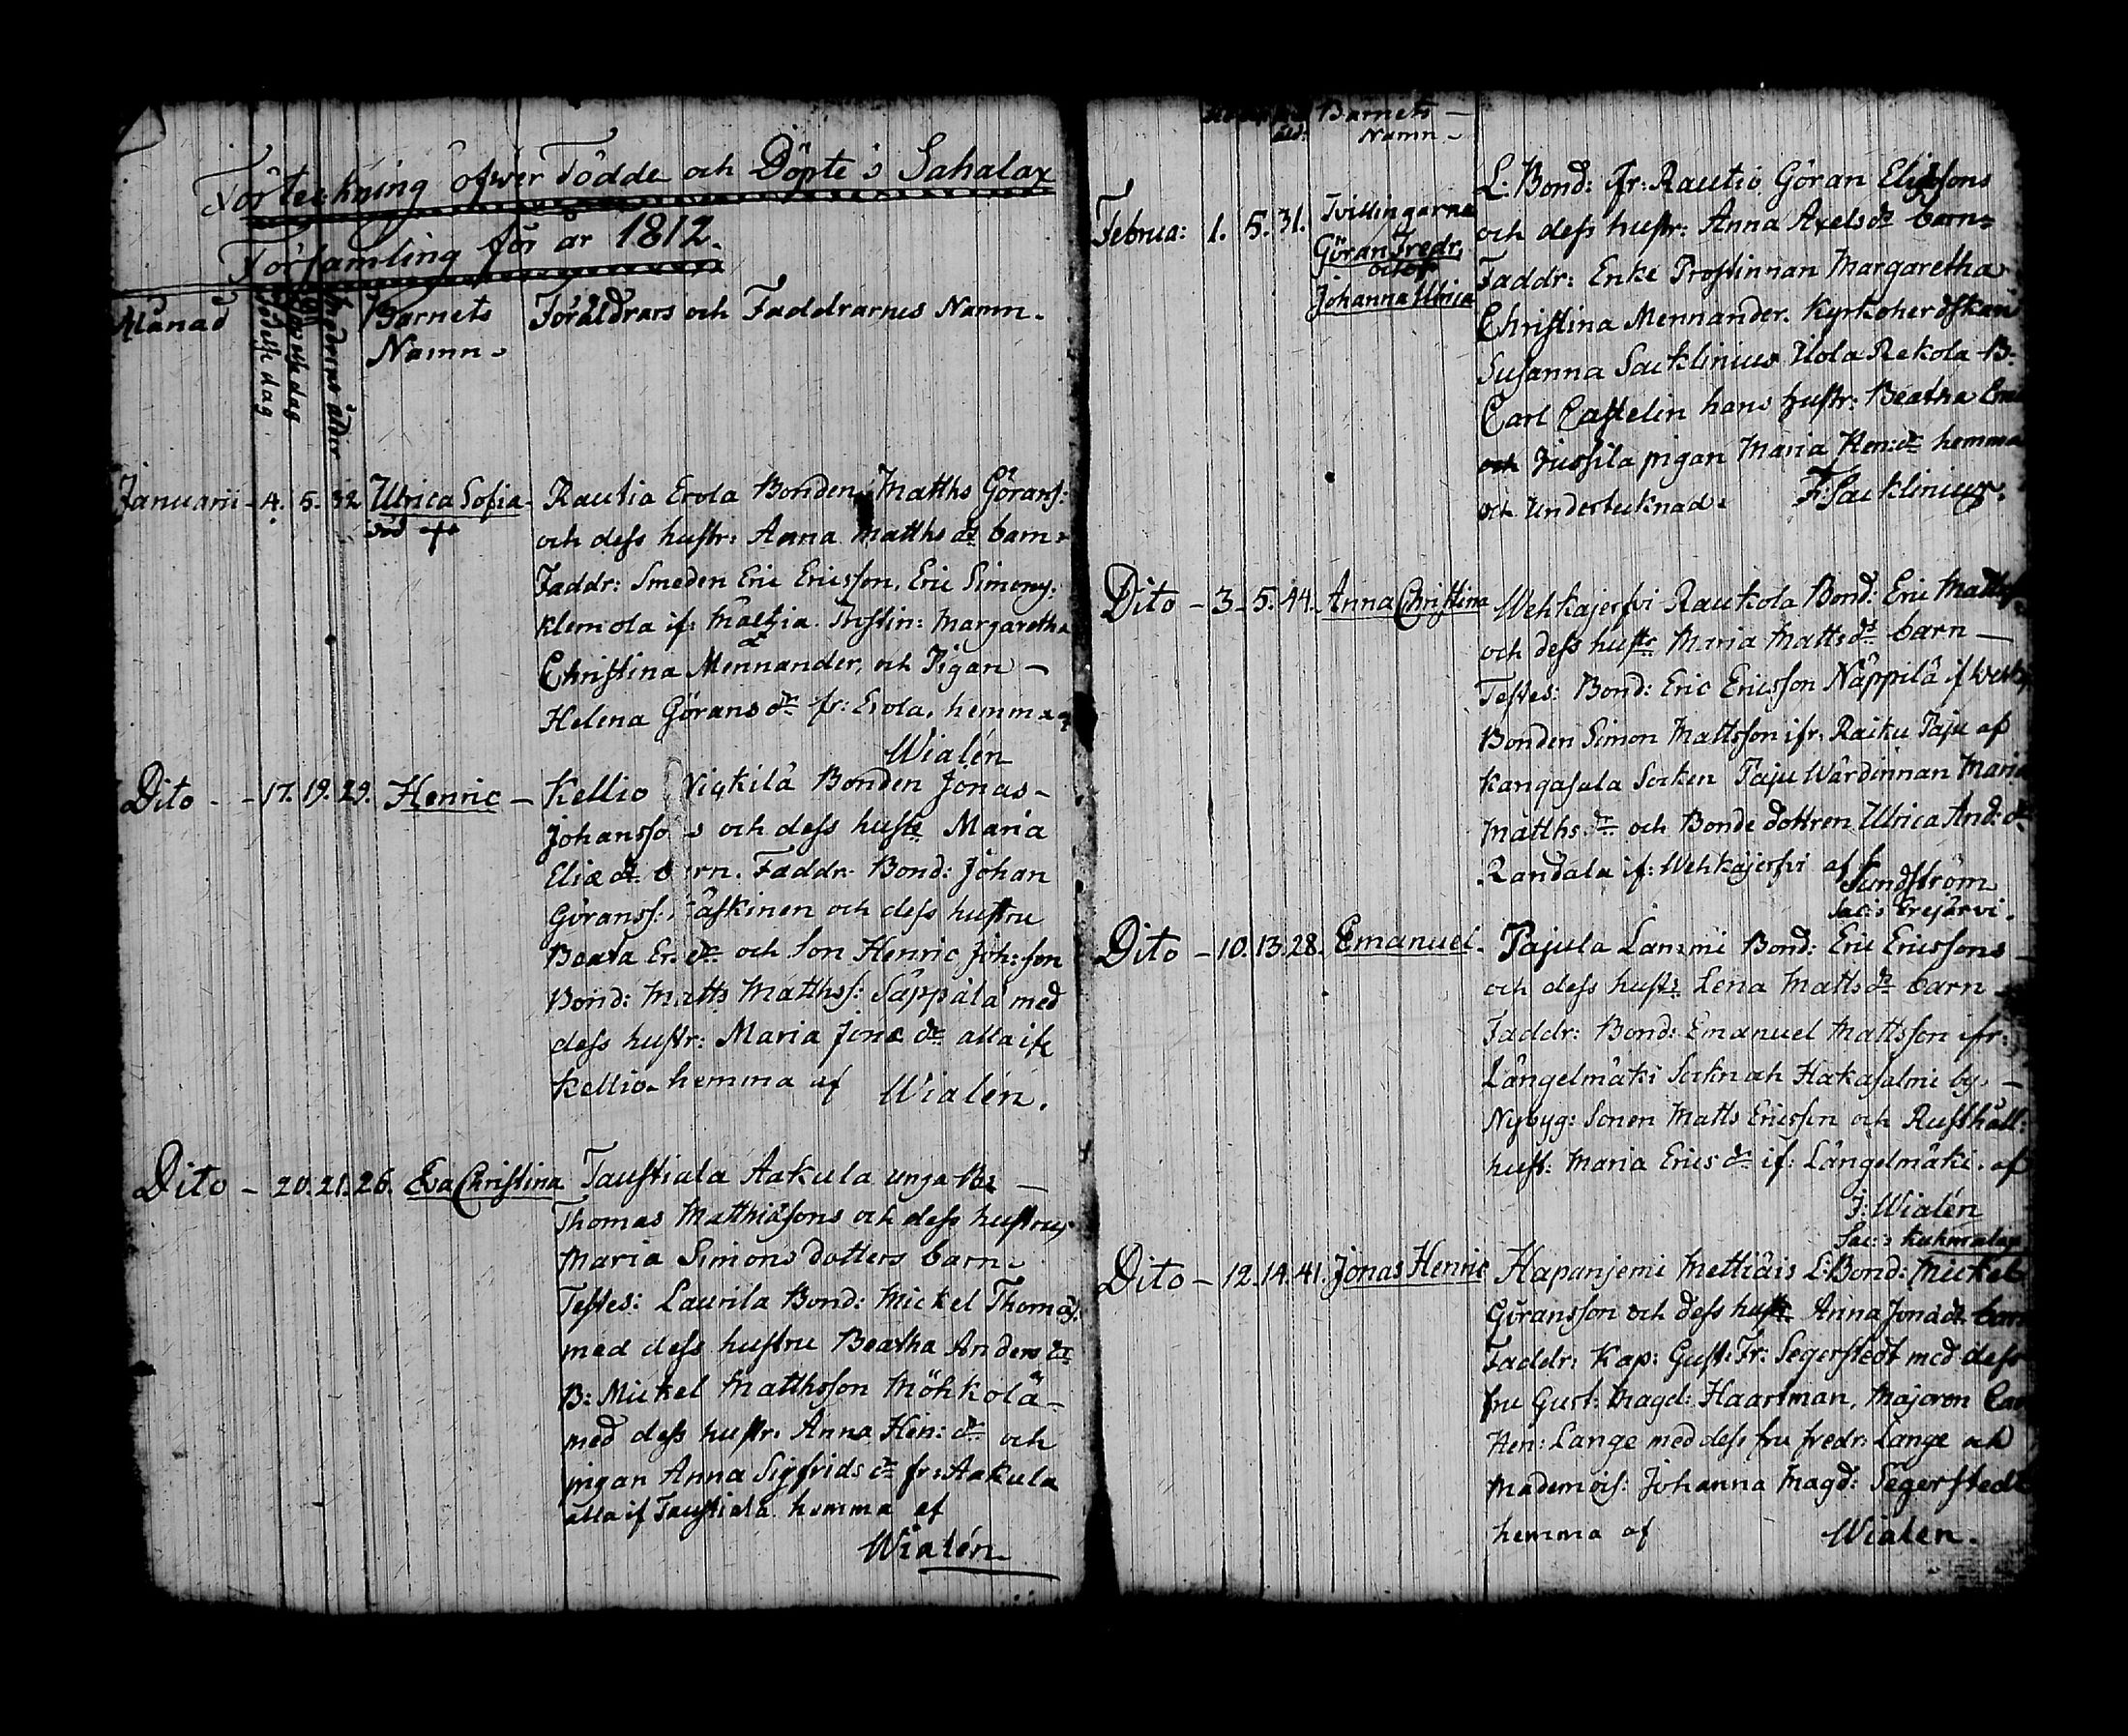 Förteckning öfwer Födde och Döpte i Sahalax
Församling för år 1812.
Månad
Födelse dag
dag
Modrens ålder
Barnets
Namn
Föräldrars och Faddrarnes Namn.
Januarii - 4. 5. 32 Ulrica Sofia
död †
Rautia Erola Bonden Matths Görans:
och dess hustr: Anna Matths dr barn
Faddr: Smeden Eric Ericsson, Eric Simons:
Klemola if: Margaretha
Christina Mennander, och Pigan —
Helena Görans dr fr: Erola, hemma af
Wialén
Dito - - 17. 19. 29. Henric —
Kellio Bonden Jonas -
och dess hustr Maria
Eliæ dr Faddr. Bond: Johan
Göranss: och dess hustru
Beata dr och Son Henric Joh:son
Bond: Matts Matthss: Säppälä med
dess hustr: Maria Jonæ dr alla if
Kellio hemma af Wialén.
Dito - 20. 21. 26. Eva Christina
Taustiala Aakula unga —
Thomas Matthiæsons och dess hustrus
Maria Simonsdotters barn
Testes: Laurila Bond: Mickel Thomas:
med dess hustru Beatha Anders dr
B: Mickel Matthsson Möhkolä -
med dess hustr: Anna Hen: dr och
pigan Anna Sigfrids dr fr: Aakula
alla if Taustiala hemma af
Wialén
åld:
Barnets —
Namn -
Februa: 1. 5. 31. Tvillingarne
Göran Fredr:
och
Johanna Ulrica
L: Bond: ifr: Rautio Göran Eliæsons
och dess hustr: Anna Axels dr barn
Faddr: Enke Prostinnan Margaretha
Christina Mennander. Kyrkoherdskan
Susanna Sacklinius Uola Rekola B:
Carl Castelin hans hustr: Beatha
och Jussila pigan Maria Hen: dr hemma
och Undertecknad: F: Sacklinius.
Dito - 3 - 5. 44. Anna Christina
Wehkajerfvi Raukola Bond: Eric
och dess hustr Maria Matts dr barn —
Testes: Bond: Eric Ericsson Näppilä if
Bonden Simon Mattsson ifr: Raiku Paju af
Kangasala Socken Paju Wärdinnan Maria
Matths. dr och Bonde dottren Ulrica And: dr
Randala if: Wehkajerfvi af
Sundström
Sac: i Eräjärvi.
Dito - 10. 13. 28. Emanuel.
Pajula Lammi Bond: Eric Ericssons
och dess hustr. Lena Matts dr barn
Faddr: Bond: Emanuel Mattsson ifr:
Längelmäki Sockn och Hakasalmi by —
Nybyg: Sonen Matts Ericsson och Rusthåll:
hust: Maria Erics dr if: Längelmäki. af
J: Wialén
Sac: i Kuhmalax
Dito - 12. 14. 41. Jonas Henric
Hapanjemi Mettiäis L: Bond: Mickel
Göransson och dess hustr Anna Jonæ dr barn
Faddr: Kap: Gust: Fr: Segerstedt med dess
fru Gust: Magd: Haartman, Majoren
Hen: Lange med dess fru fredr: Lange och
Mademois: Johanna Magd: Segerstedt
hemma af Wialén.